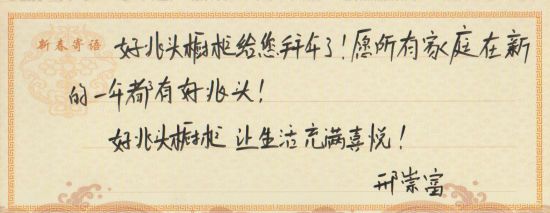 新春寄语
好兆头橱柜给您拜年了！愿所有家庭在新
的一年都有好兆头！
好兆头橱柜让生活充满喜悦！
邢崇富